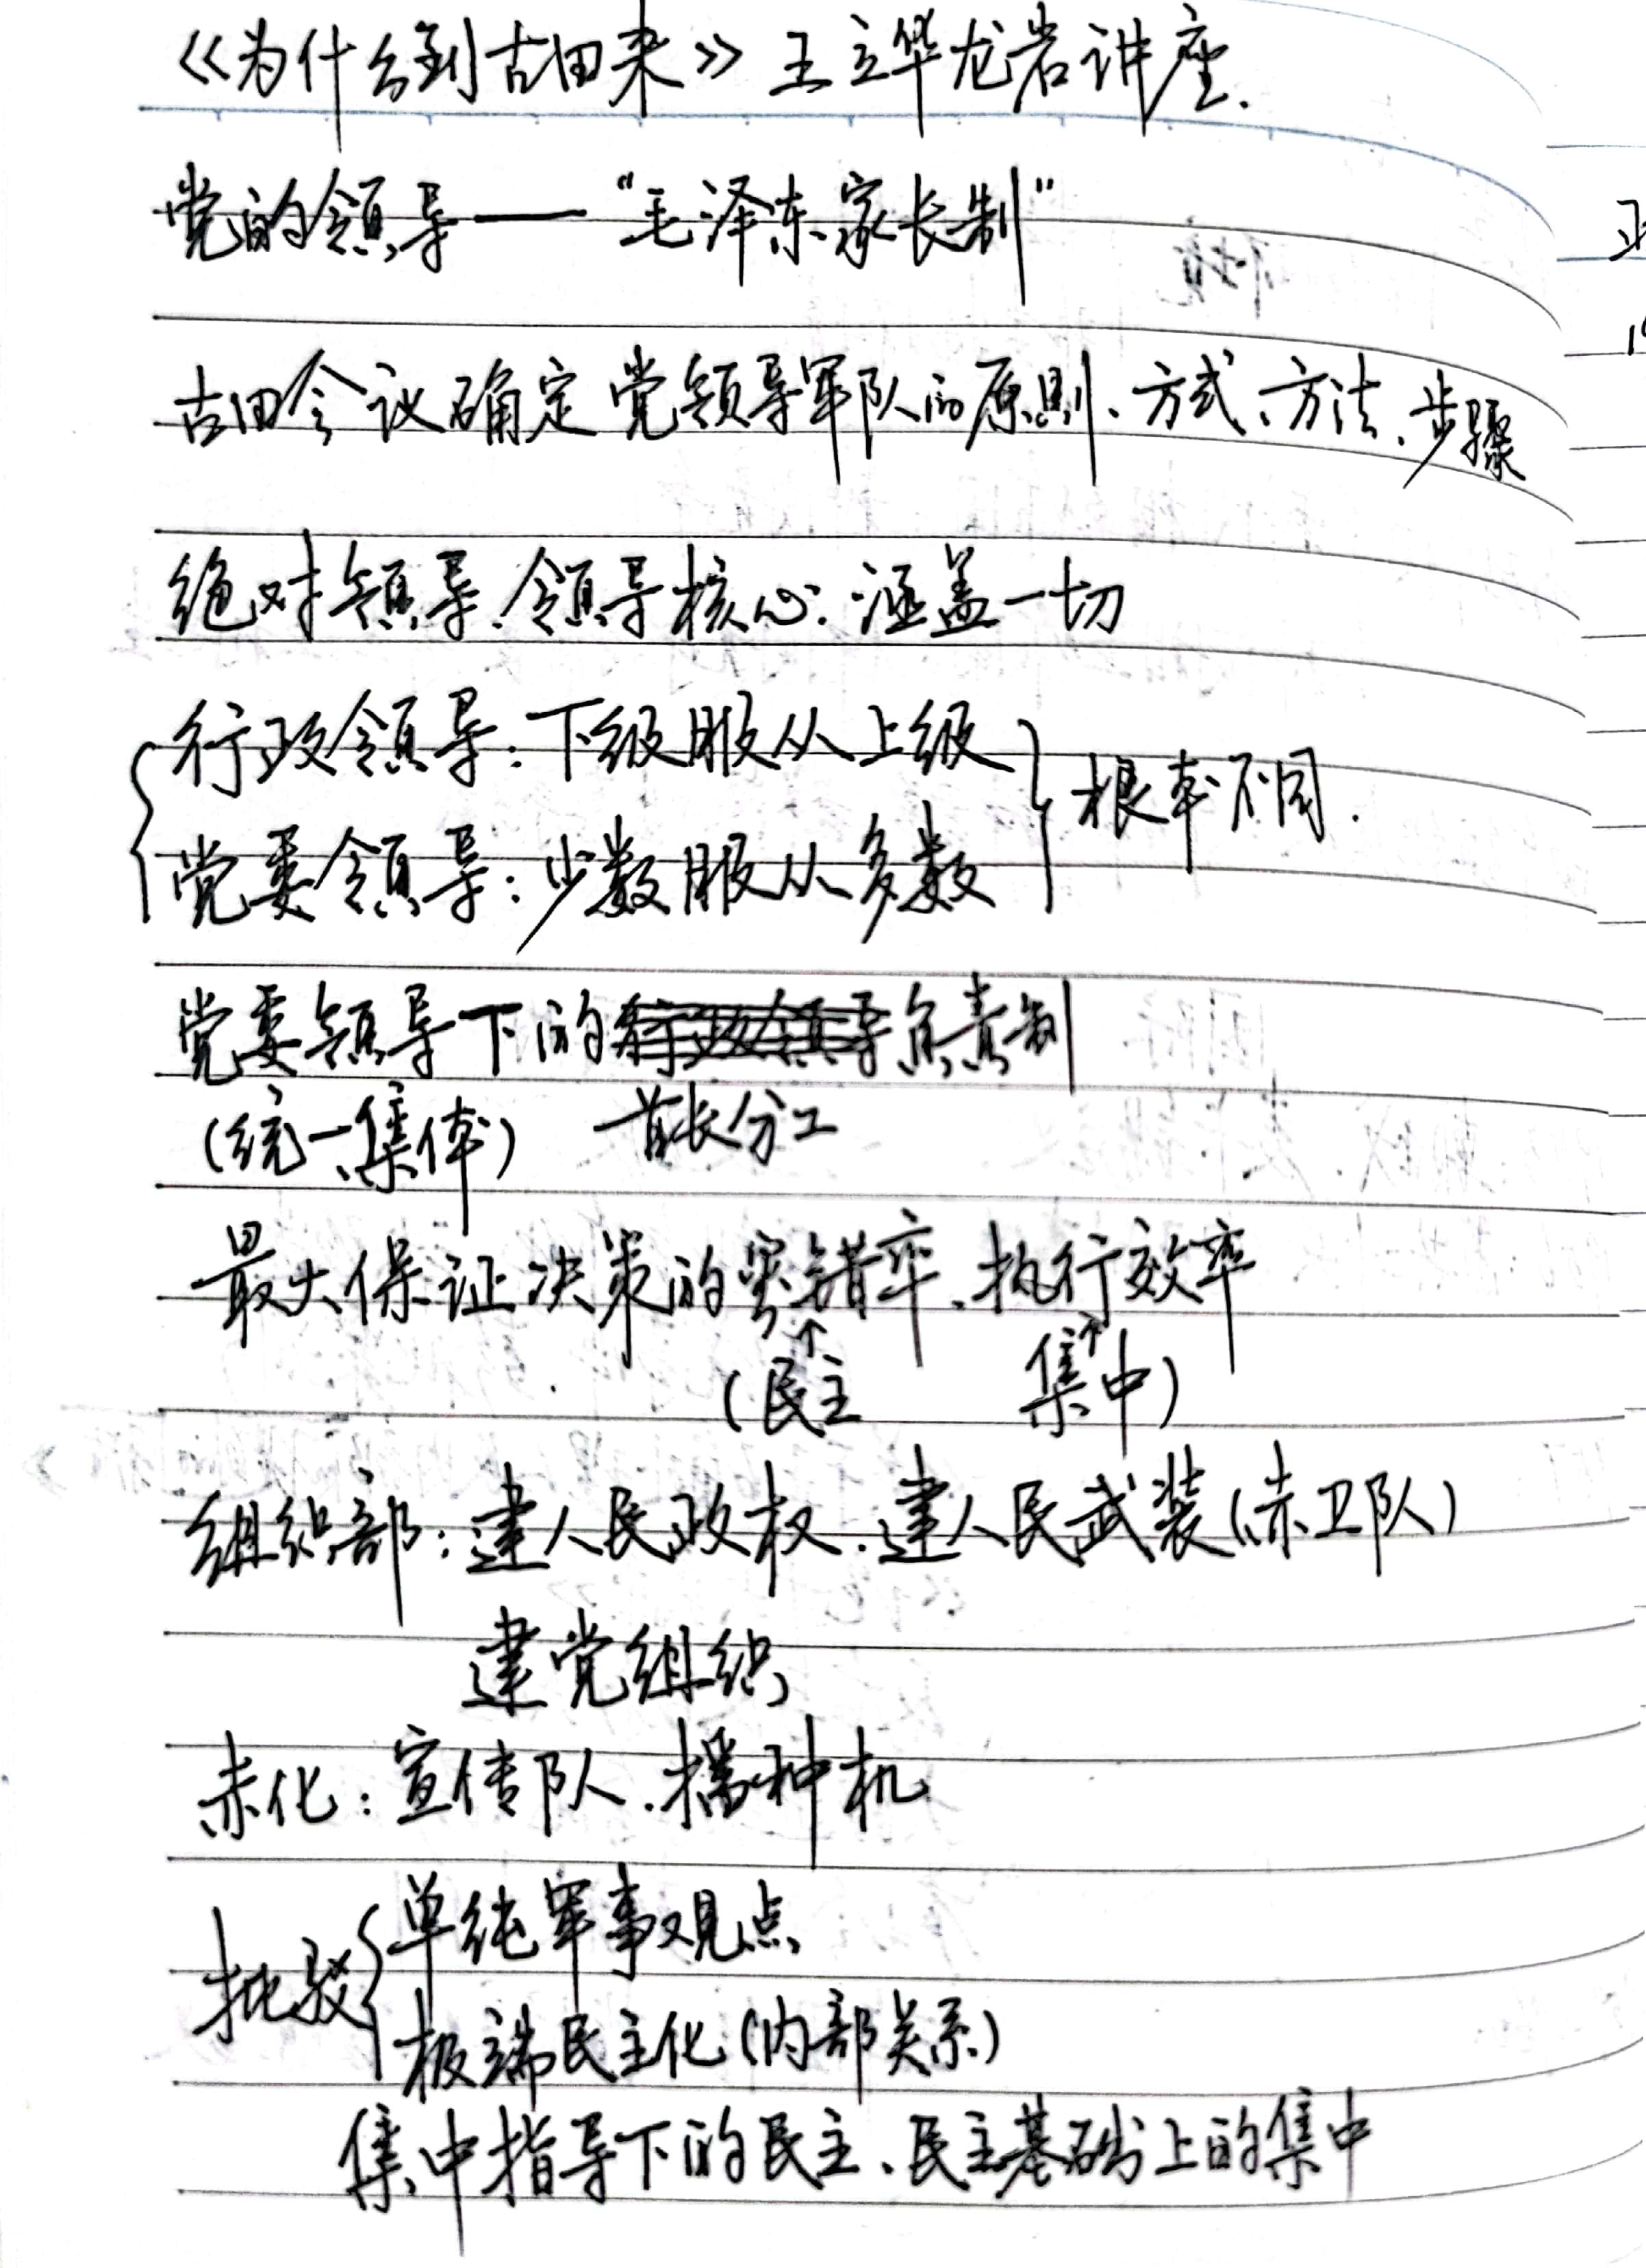 《为什么到古田来》王立华龙岩讲座.
党的领导——“毛泽东家长制”
古田会议确定党领导军队的原则、方式、方法、步骤
绝对领导、领导核心:涵盖一切
行政领导:下级服从上级
党委领导:少数服从多数
根本不同.
党委领导下的行政领导负责制
(统一、集体) 首长分工
最大保证决策的容错率、执行效率
(民主 集中)
组织部:建人民政权、建人民武装(赤卫队)
建党组织
赤化:宣传队、播种机
批驳
单纯军事观点
极端民主化(内部关系)
集中指导下的民主、民主基础上的集中